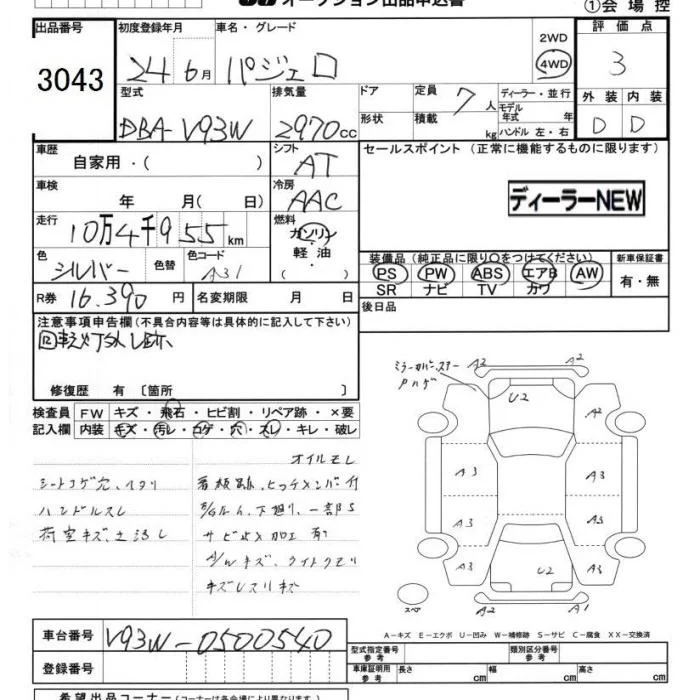 オークション出品申込書
①会場控
出品番号
3043
初度登録年月
24 6月
車名・グレード
パジェロ
2WD
4WD
評価点
3
型式
DBA-V93W
排気量
2970cc
ドア
形状
定員 7人
積載 kg
ディーラー・並行
モデル年式 年
ハンドル 左・右
外装 内装
D D
車歴
自家用・( )
シフト
AT
セールスポイント(正常に機能するものに限ります)
ディーラーNEW
車検
年 月( 日)
冷房
AAC
走行
10万4千955km
燃料
ガソリン
軽油
・( )
色
シルバー
色替
色コード
A31
装備品(純正品に限り○をつけてください)
PS PW ABS エアB AW
SR ナビ TV カワ
新車保証書
有・無
R券 16.390円
名変期限 月 日
後日品
注意事項申告欄(不具合内容等は具体的に記入して下さい)
修復歴 有 〔箇所 〕
検査員記入欄
FW キズ・飛石・ヒビ割・リペア跡・×要
内装 キズ・汚レ・コゲ・穴・スレ・キレ・破レ
オイルモレ
シートコゲ穴、ヘタリ
ハンドルスレ
荷室キズ、土汚レ
看板跡、ヒッチメンバ付
E/Gルーム、下廻り、一部S
サビ止メ加工有
A/Wキズ、ライトクモリ
キズレスリキズ
ミラーカバー
Pハゲ
A2 A2
U2
A2
A3 A3
A3 A3
A3 U2 A3
A2 A1
スペア
A−キズ E−エクボ U−凹み W−補修跡 S−サビ C−腐食 XX−交換済
車台番号 V93W-0500540
登録番号
型式指定番号 参考
類別区分番号 参考
車庫証明用 参考
長さ cm 幅 cm 高さ cm
希望出品コーナー(コーナーは各会場により異なります。)